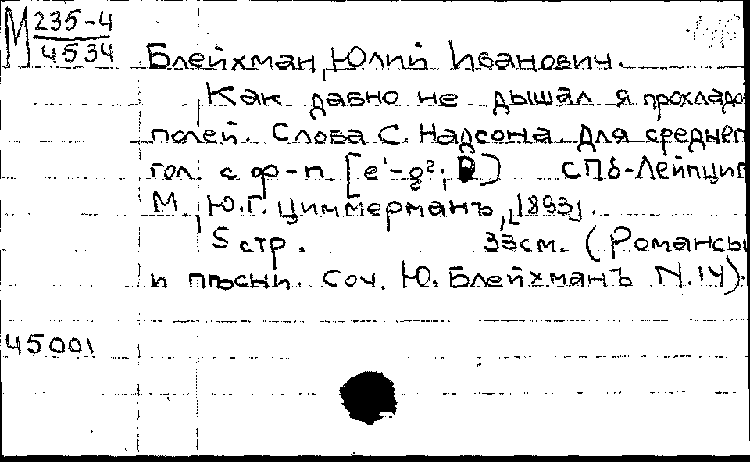 М 235-4
4534
Блейхман, Юлий Иванович.
Как давно не дышал я прохладо
полей. Слова С. Надсона. Для среднег
гол. с ф-п [e¹-g²; D] СПб-Лейпциг
М., Ю.Г. Циммерманъ, [1893].
5 стр. 33см. (Романсы
и пѣсни. Соч. Ю. Блейхманъ N.14).
45001